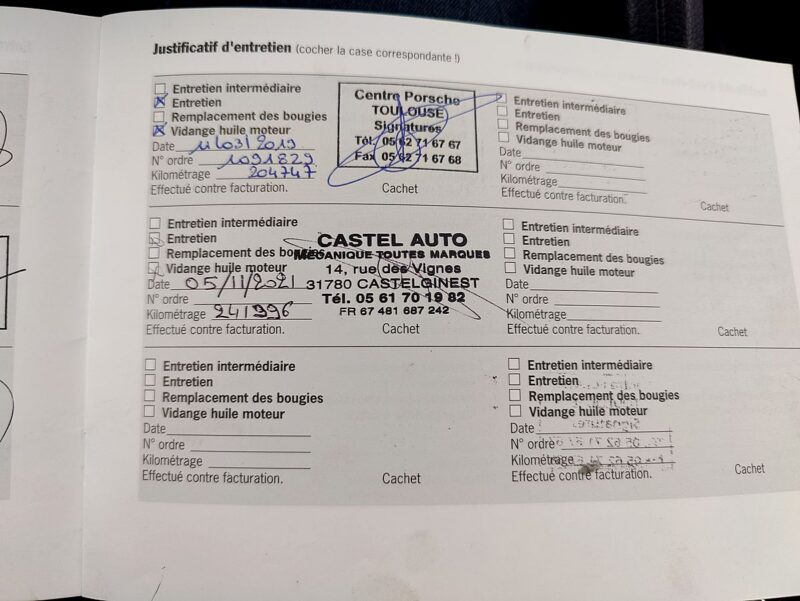 Justificatif d'entretien (cocher la case correspondante !)
Entretien intermédiaire
Entretien
Remplacement des bougies
Vidange huile moteur
Date 11/03/2019
N° ordre 1091829
Kilométrage 204747
Effectué contre facturation.
Centre Porsche
TOULOUSE
Signatures
Tél. 05 62 71 67 67
Fax 05 62 71 67 68
Cachet
Entretien intermédiaire
Entretien
Remplacement des bougies
Vidange huile moteur
Date
N° ordre
Kilométrage
Effectué contre facturation.
Cachet
Entretien intermédiaire
Entretien
Remplacement des bougies
Vidange huile moteur
Date 05/11/2021
N° ordre
Kilométrage 241996
Effectué contre facturation.
CASTEL AUTO
MÉCANIQUE TOUTES MARQUES
14, rue des Vignes
31780 CASTELGINEST
Tél. 05 61 70 19 82
FR 67 481 687 242
Cachet
Entretien intermédiaire
Entretien
Remplacement des bougies
Vidange huile moteur
Date
N° ordre
Kilométrage
Effectué contre facturation.
Cachet
Entretien intermédiaire
Entretien
Remplacement des bougies
Vidange huile moteur
Date
N° ordre
Kilométrage
Effectué contre facturation.
Cachet
Entretien intermédiaire
Entretien
Remplacement des bougies
Vidange huile moteur
Date
N° ordre
Kilométrage
Effectué contre facturation.
Cachet